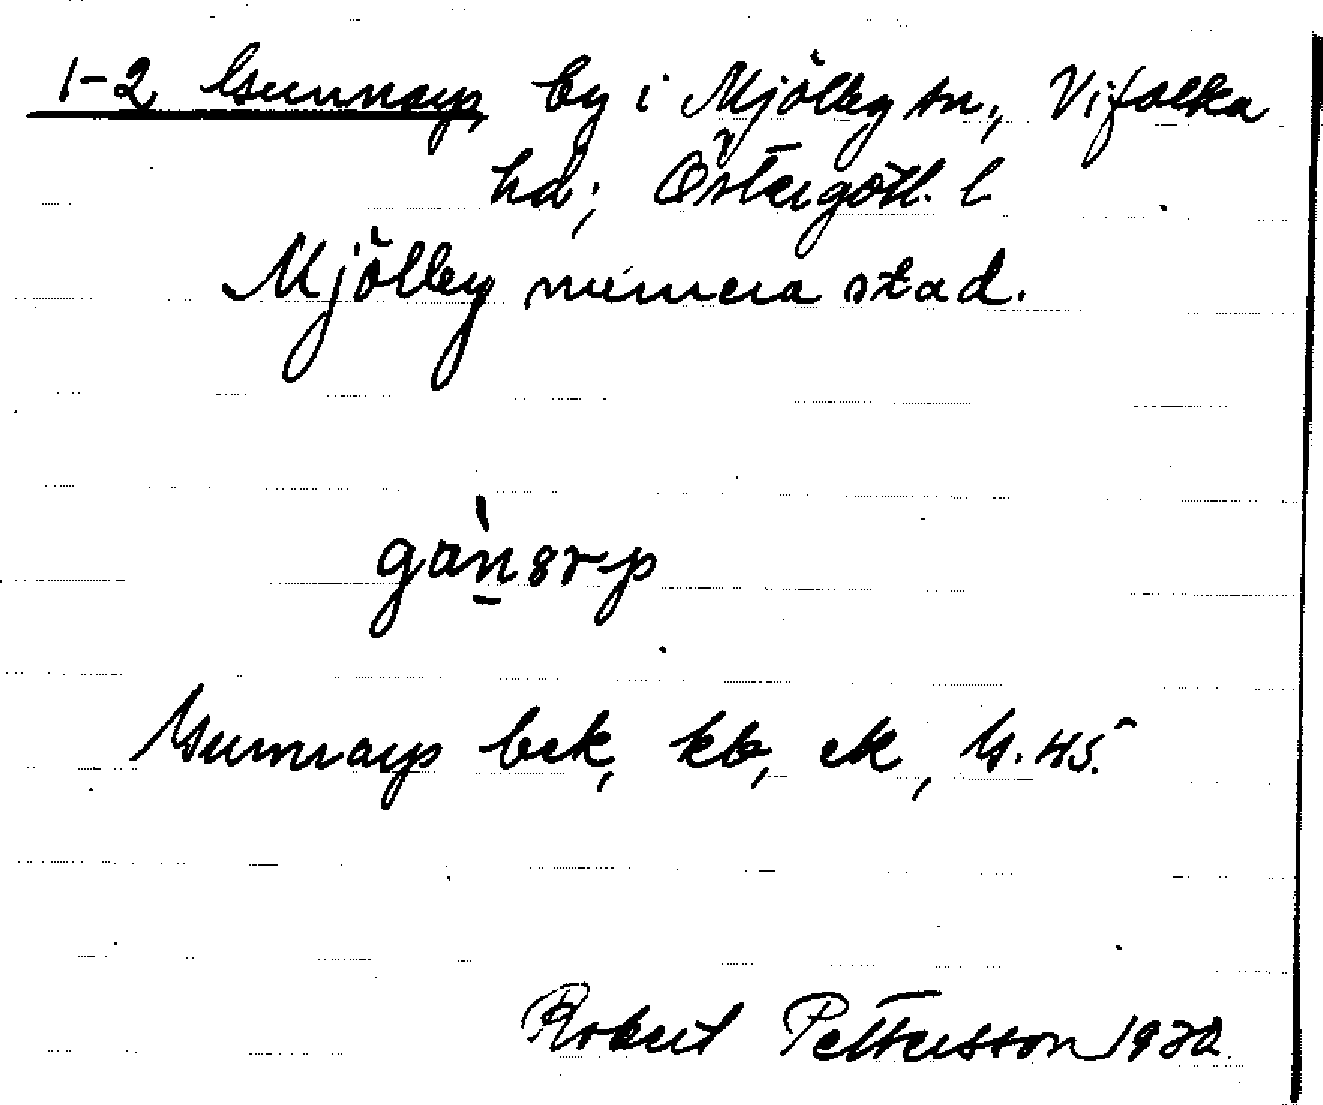 1-2 Gunnarp, by i Mjölby sn, Vifolka
hd; Östergötl. l.
Mjölby numera stad.
Gunnarp bek, kb, ek, G. 45.
Robert Pettersson 1932